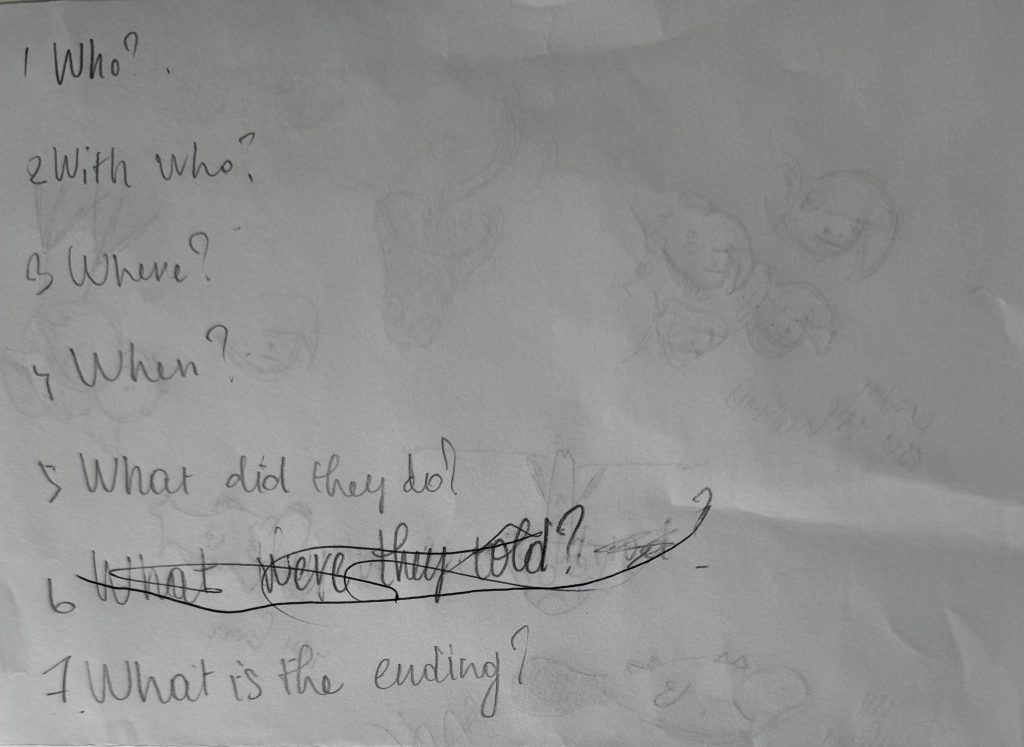 1 Who?.
2 With who?
3 Where?
4 When?
5 What did they do?
6 What were they told?
7 What is the ending?